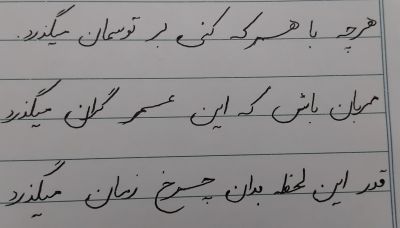 هرچه با هر که کنی بر تو همان میگذرد.
مهربان باش که این عمر گران میگذرد
قدر این لحظه بدان چرخ زمان میگذرد